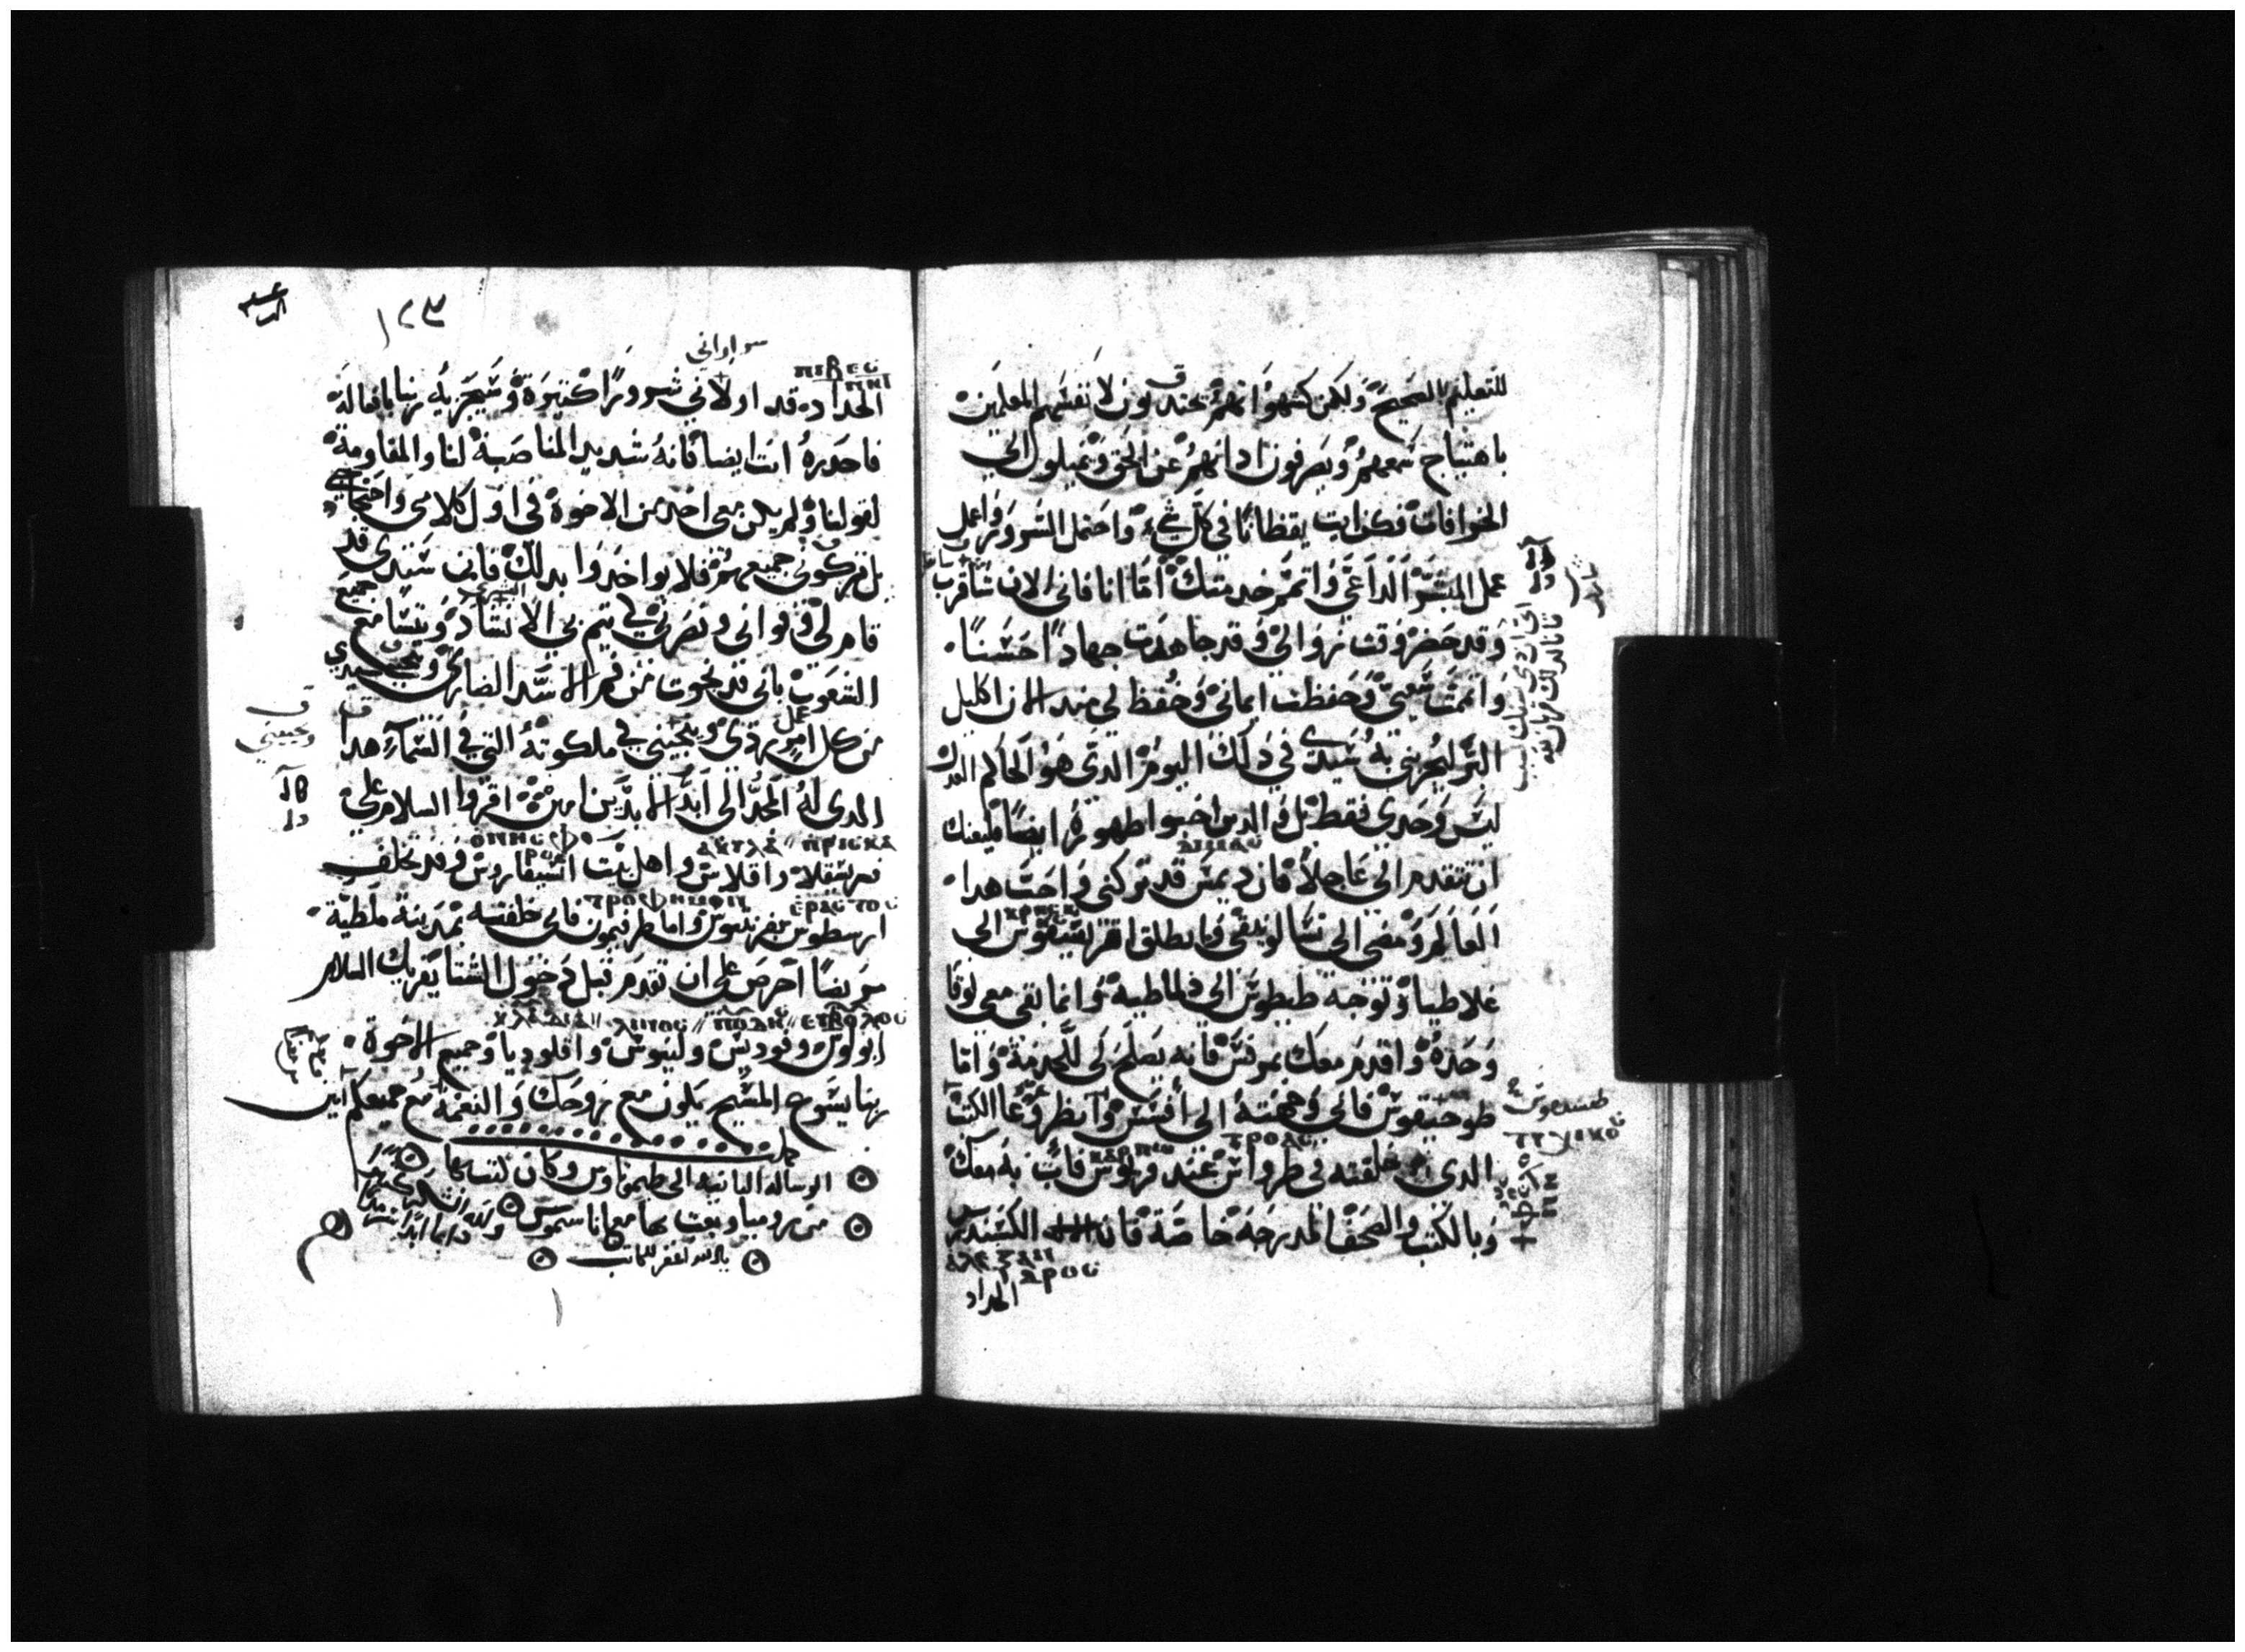 للتعليم الصحيح ولكن كشهواتهم يختدقون لانفسهم المعلمين
باهتياج سمعهم ويصرفون اذانهم عن الحق ويميلون الي
الخرافات فكن انت يقظانا في كل شيء واحتمل الشرور واعمل
عمل المبشر الداعي واتمم خدمتك اما انا فاني الان ساقرب
وقد حضر وقت زوالي وقد جاهدت جهادا حسنا
واتممت سعيي وحفظت ايماني وحفظ لي منذ الان اكليل
البر ليجزيني به سيدي في ذلك اليوم الذي هو الحاكم العدل
ليس وحدي فقط بل والذين احبوا ظهوره ايضا فليعنك
ΔΙΜΑС
ان تتقدم الي عاجلا فان ديمس قد تركني واحب هذا
ΚΡΗСΚ
العالم ومضي الي تسالونيقي وانطلق اقريسقوس الي
غلاطيا وتوجه طيطوس الي دلماطيه وانما بقي معي لوقا
وحده واقدم معك بمرقس فانه يصلح لي للخدمة واما
طوخيقوس فاني وجهته الي افسس وانظر وعا الكتب
ΤΥΧΙΚΟС
ΤΡΟΑС ΚΑΡΠΟС
الذي خلفته في طرواس عند قربوس فات به معك
وبالكتب والصحف المدرجة خاصة فان الكسندرس
ΑΛΕΞΑΝ
ΔΡΟС
الحداد
١٢٣
الحداد قد اولاني شرورا كثيرة وسيجزيه ربنا بافعاله
فاحذره انت ايضا فانه شديد المناصبة لنا والمقاومة
لقولنا ولم يكن معي احد من الاخوة في اول كلامي واحتجاجي
بل تركوني جميعهم فلا يواخذوا بذلك فاني سيدي قد
قام لي وقواني ونصرني لكي يتم بي الانذار ويتسامع جميع
الشعوب باني قد نجوت من فم الاسد الضاري وينجيني سيدي
من كل عمل ردي وينجيني في ملكوته التي في السماء هذا
الذي له المجد الي ابد الابدين امين اقروا السلام علي
ΟΝΗСΙΦΟ ΡΟС ΑΚΥΛΑ ΠΡΙСΚΑ
فرسقلا واقلاس واهل بيت انسيفاروس وقد تخلف
ΤΡΟΦΗΜΟΝ ΕΡΑСΤΟС
ارسطوس بقرنتيوس واما طرفيمون فاني خلفته بمدينة ملطية
مريضا احرص علي ان تقدم قبل دخول الشتا يقريك السلام
ΚΛΑΥΔΙΑ ΛΙΝΟС ΠΟΔΗС ΕΥΒΟΛΟС
ابولوس وفوديس ولينوس واقلوديا وجميع الاخوة
ربنا يسوع المسيح يكون مع روحك والنعمة مع جميعكم امين
كملت
الرسالة الثانيه الي طيموثاوس وكان كتب بها
من روميا وبعث بها مع اناسيموس
يا الله اغفر للكاتب